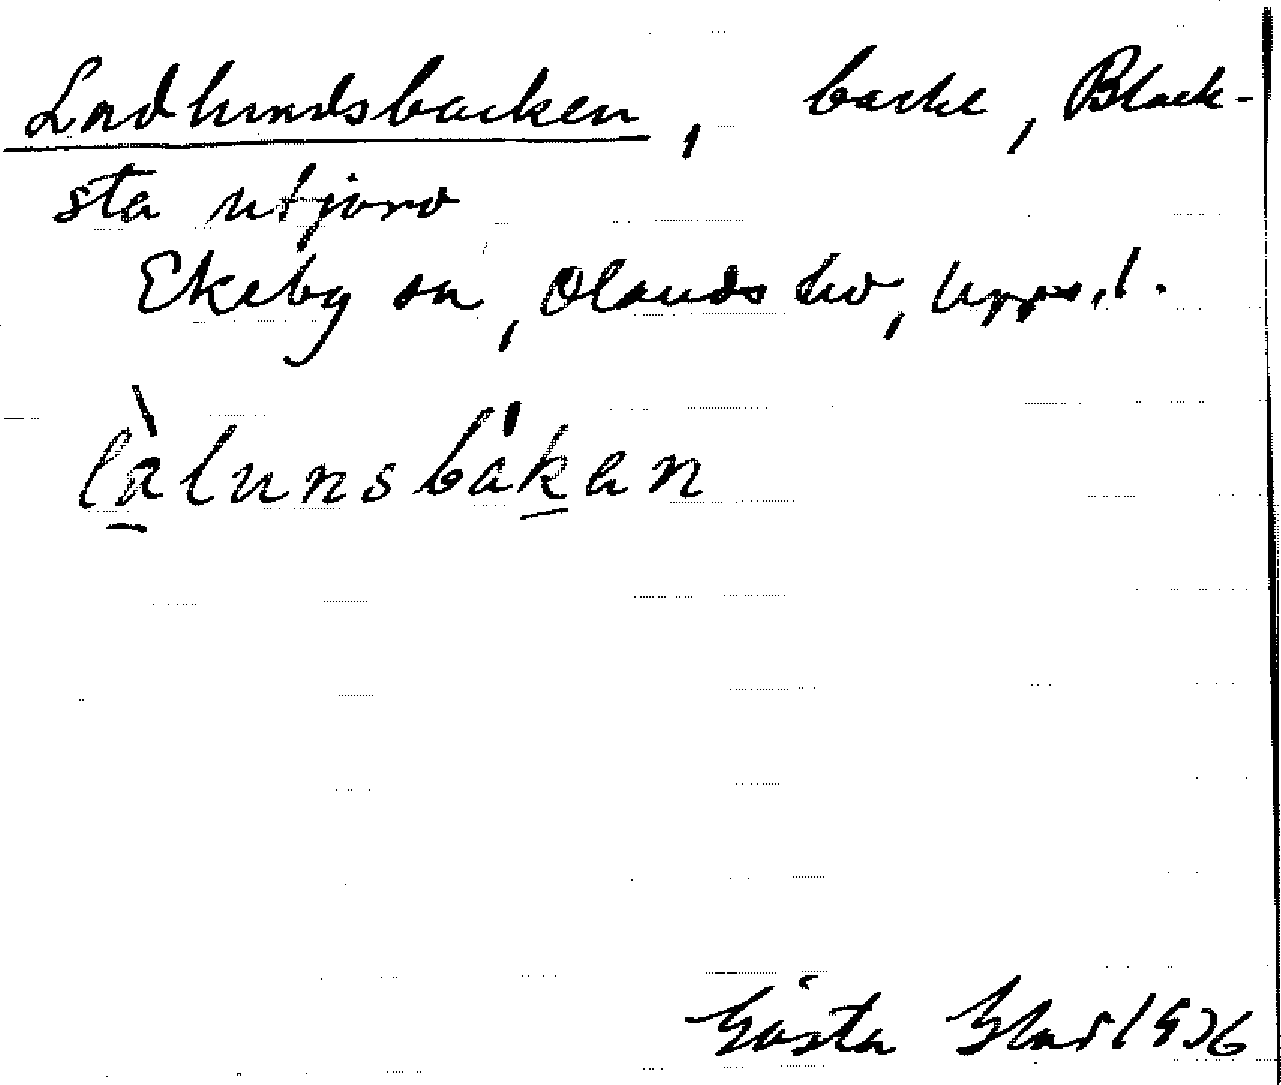 Ladlundsbacken, backe, Black-
sta utjord
Ekeby sn, Olands hd, Upps. l.
là̠lunsbák̠en
Gösta 1936